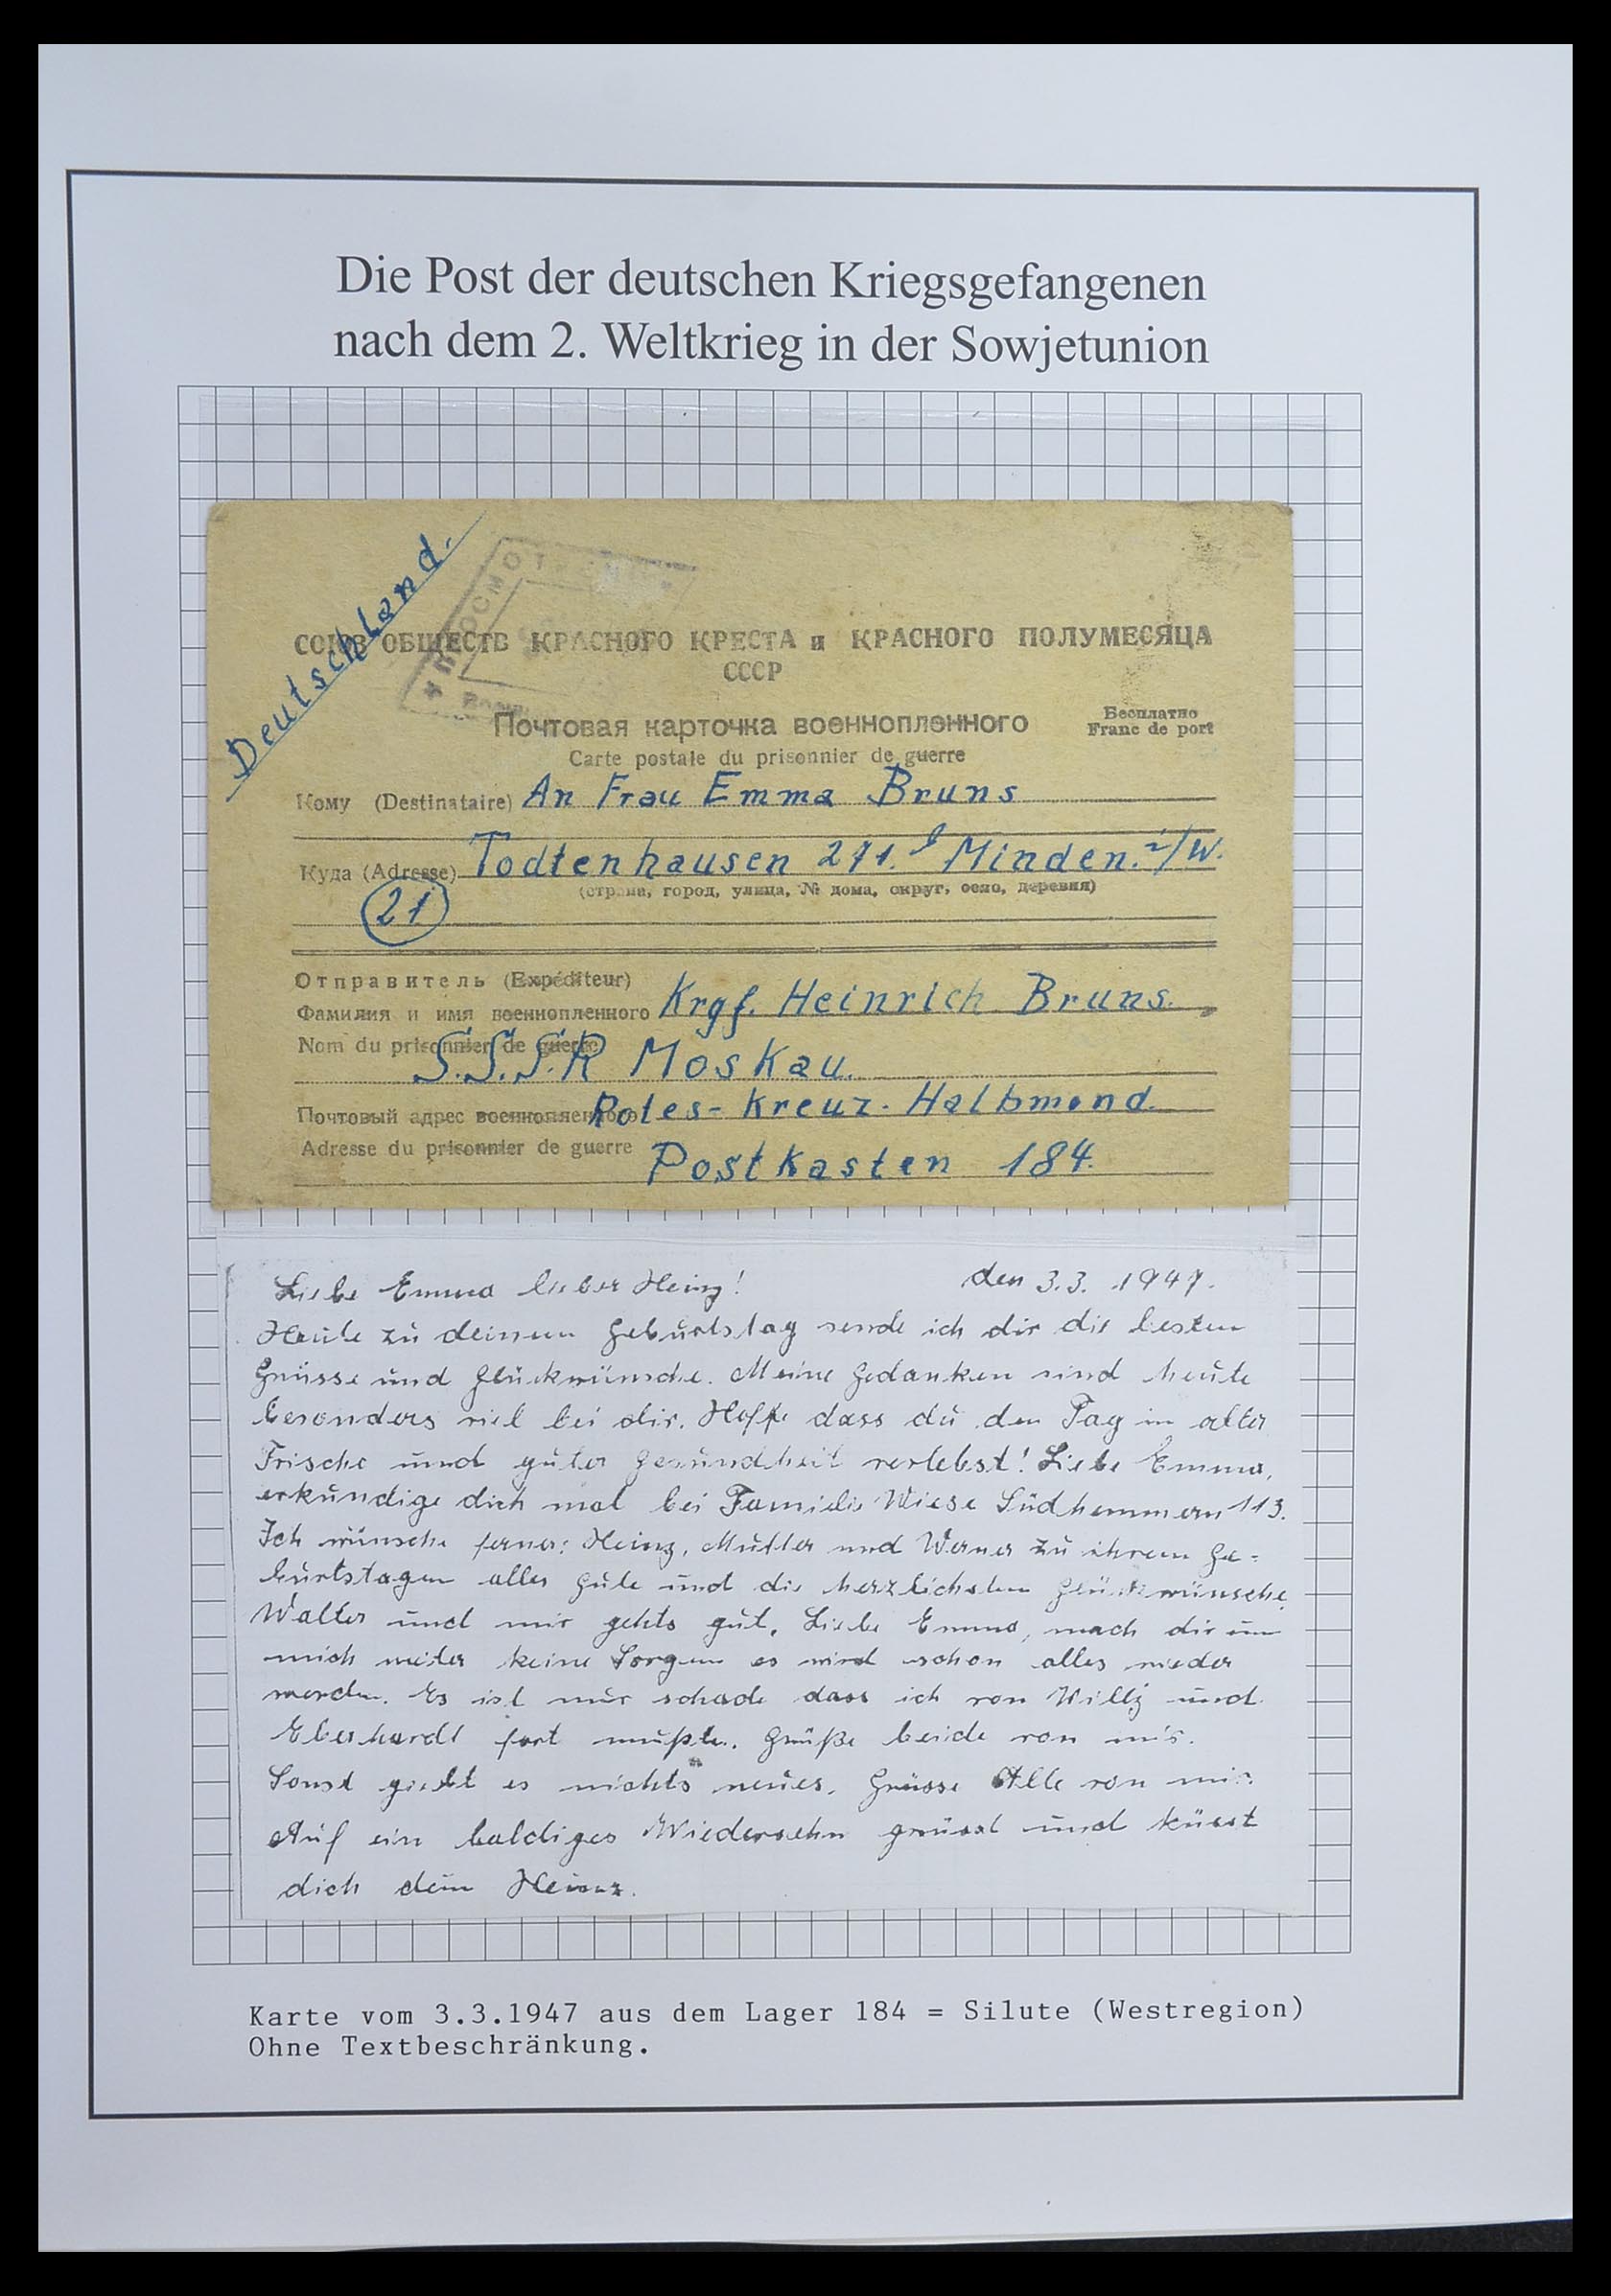 Die Post der deutschen Kriegsgefangenen
nach dem 2. Weltkrieg in der Sowjetunion
Deutschland.
СОЮЗ ОБЩЕСТВ КРАСНОГО КРЕСТА и КРАСНОГО ПОЛУМЕСЯЦА
СССР
Почтовая карточка военнопленного
Бесплатно
Franc de port
Carte postale du prisonnier de guerre
Кому (Destinataire) An Frau Emma Bruns
Куда (Adresse) Todtenhausen 271. Minden. i/W.
(страна, город, улица, № дома, округ, село, деревня)
21
Отправитель (Expéditeur)
Фамилия и имя военнопленного Krgf. Heinrich Bruns.
Nom du prisonnier de guerre
S.S.S.R Moskau.
Почтовый адрес военнопленного Rotes-Kreuz-Halbmond.
Adresse du prisonnier de guerre Postkasten 184.
Liebe Emma lieber Heinz! den 3.3.1947.
Heute zu deinem Geburtstag sende ich dir die besten
Grüsse und Glückwünsche. Meine Gedanken sind heute
besonders viel bei dir. Hoffe dass du den Tag in alter
Frische und guter Gesundheit verlebst! Liebe Emma,
erkundige dich mal bei Familie Wiese Südhemmern 113.
Ich wünsche ferner: Heinz, Mutter und Werner zu ihrem Ge=
burtstagen alles gute und die herzlichsten Glückwünsche
Walter und mir gehts gut. Liebe Emma, mach dir um
mich weiter keine Sorgen es wird schon alles wieder
werden. Es ist nur schade dass ich von Willy und
Eberhardt fort mußte. Grüße beide von mir.
Sonst giebt es nichts neues. Grüsse Alle von mir
Auf ein baldiges Wiedersehn grüsst und küsst
dich dein Heinz.
Karte vom 3.3.1947 aus dem Lager 184 = Silute (Westregion)
Ohne Textbeschränkung.